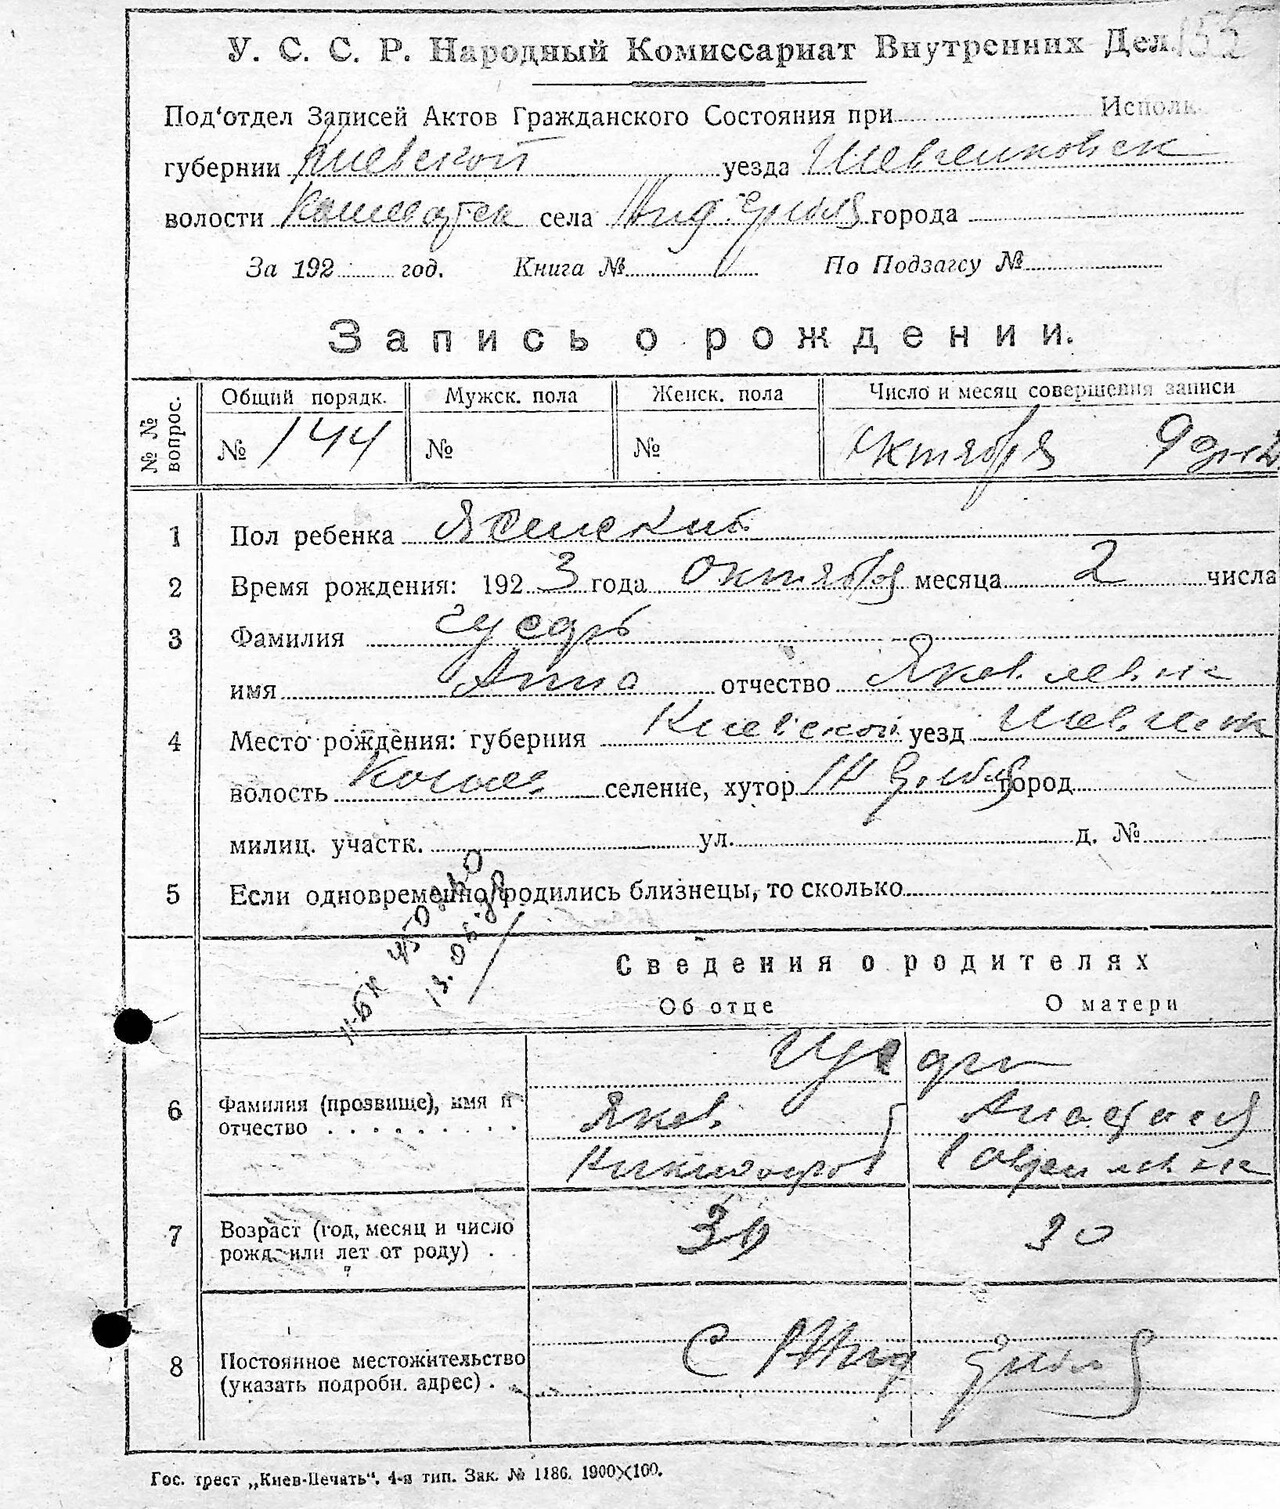 155
У. С. С. Р. Народный Комиссариат Внутренних Дел.
Под‘отдел Записей Актов Гражданского Состояния при Исполк.
губернии Киевской уезда Шевченковск
волости села города
За 192 год. Книга № По Подзагсу №
Запись о рождении.
№ № вопрос. Общий порядк. Мужск. пола Женск. пола Число и месяц совершения записи
№ 144 № № Октября 9 дня
1 Пол ребенка Женский
2 Время рождения: 192 3 года Октября месяца 2 числа
3 Фамилия
имя Анна отчество Яковлевна
4 Место рождения: губерния Киевской уезд Шевченк
волость селение, хутор город
милиц. участк. ул. д. №
5 Если одновременно родились близнецы, то сколько
Сведения о родителях
Об отце О матери
6 Фамилия (прозвище), имя и отчество . . . . . . . . .
Яков Анастасия
7 Возраст (год, месяц и число рожд. или лет от роду) . .
39 30
8 Постоянное местожительство (указать подробн. адрес) .
С
Гос. трест „Киев-Печать“. 4-я тип. Зак. № 1186. 1900X100.